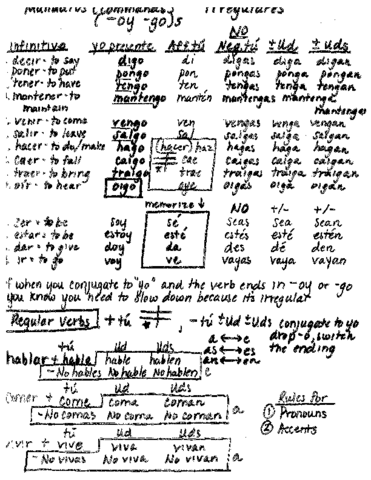 Mandatos (Commands) Irregulares
(-oy -go)s
NO
Infinitive yo presente Aff.tú Neg.tú ±Ud ±Uds
decir - to say digo di digas diga digan
poner - to put pongo pon pongas ponga pongan
tener - to have tengo ten tengas tenga tengan
mantener - to maintain mantengo mantén mantengas mantenga mantengan
venir - to come vengo ven vengas venga vengan
salir - to leave salgo sal salgas salga salgan
hacer - to do/make hago (hacer) haz hagas haga hagan
caer - to fall caigo cae caigas caiga caigan
traer - to bring traigo trae traigas traiga traigan
oir - to hear oigo oye oigas oiga oigan
memorize ↓ NO +/- +/-
ser - to be soy sé seas sea sean
estar - to be estoy esté estés esté estén
dar - to give doy da des dé den
ir - to go voy ve vayas vaya vayan
If when you conjugate to "yo" and the verb ends in -oy or -go
you know you need to slow down because its irregular
Regular verbs ++ú , -tú ±ud ±uds conjugate to yo
drop-o, switch
the ending
a ↔ e
as ↔ es
an ↔ en
tú Ud Uds
hablar + habla hable hablen
- No hables No hable No hablen e
tú Ud Uds
comer + come coma coman
- No comas No coma No coman a
tú Ud Uds
vivir + vive viva vivan
- No vivas No viva No vivan a
Rules for
① Pronouns
② Accents